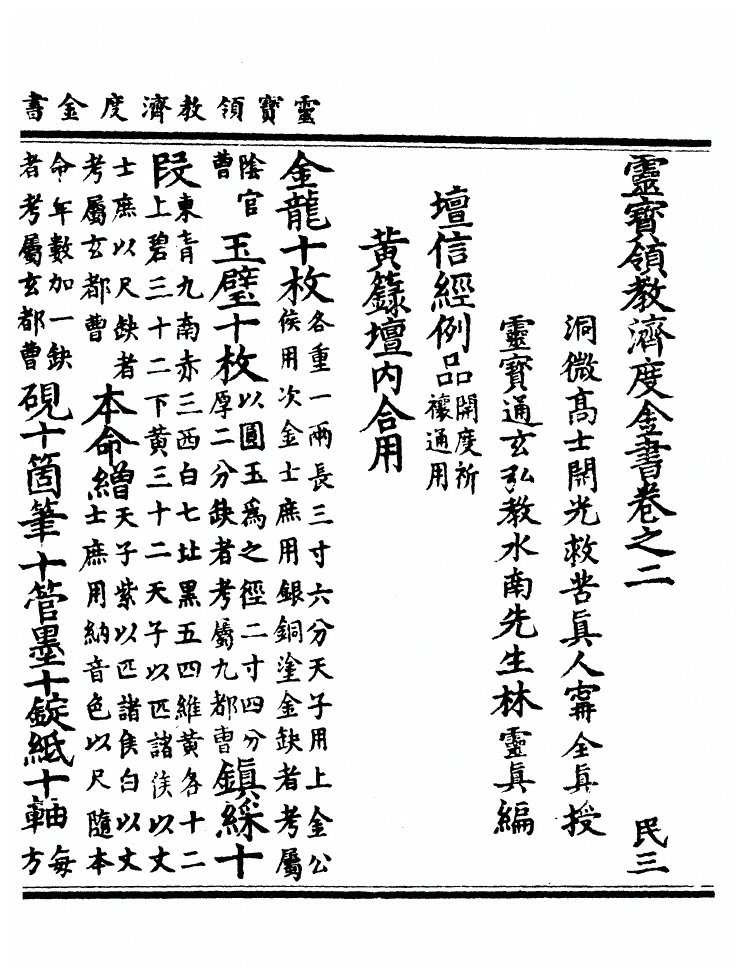 靈寶領教濟度金書
靈寶領教濟度金書卷之二 民三
洞微高士開光救苦眞人甯全眞授
靈寶通玄弘教水南先生林靈眞編
壇信經例品開度祈禳通用
黃籙壇內合用
金龍十枚各重一兩長三寸六分天子用上金公侯用次金士庶用銀銅塗金缺者考屬
陰官曹玉璧十枚以圓玉爲之徑二寸四分厚二分缺者考屬九都曹鎭綵十
段東青九南赤三西白七北黑五四維黃各十二上碧三十二下黃三十二天子以匹諸侯以丈
士庶以尺缺者考屬玄都曹本命繒天子紫以匹諸侯白以丈士庶用納音色以尺隨本
命年數加一缺者考屬玄都曹硯十箇筆十管墨十錠紙十軸每方